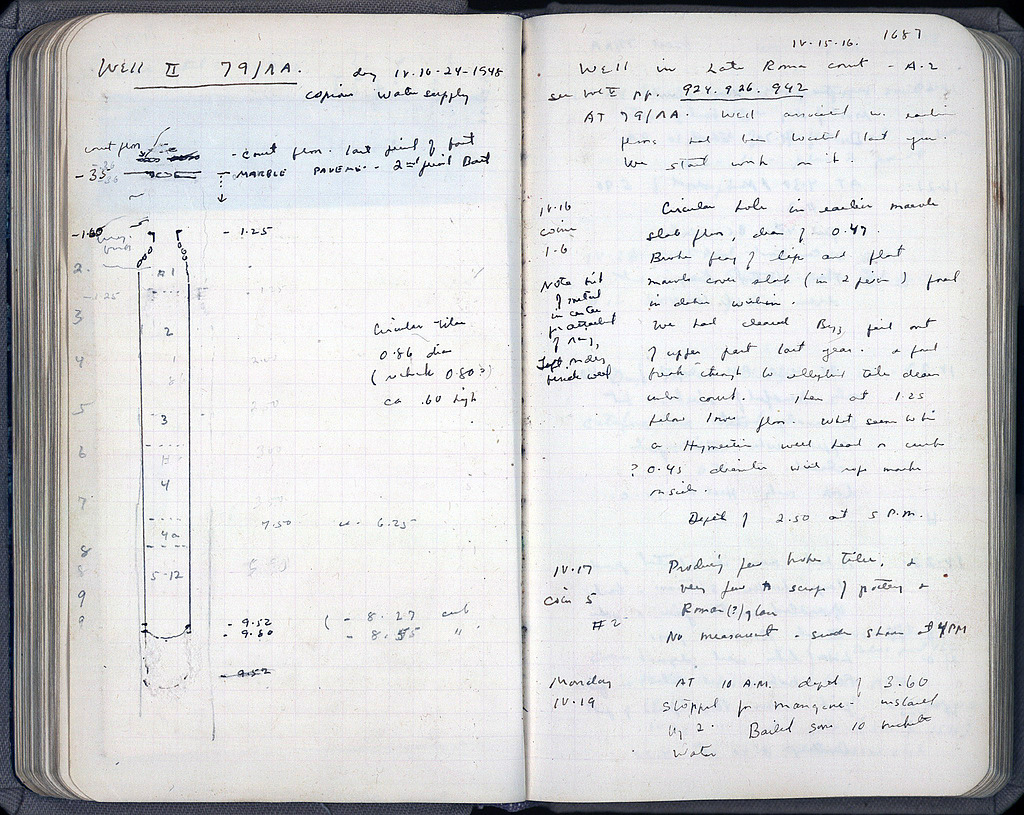 WELL II 79/AA. dug IV.16-24-1948
copious water supply
court floor
- court floor. last period of court
-.35 - MARBLE PAVEMt. - 2nd period Court
-1.60 - 1.25
2. #1
-1.25
3
2
Circular tiles
0.86 dia
4. (include 0.80?)
ca .60 high
5
3
6
4
7
7.50 ca. 6.25
4a
8
5-12
9
- 9.52 (- 8.27 curb
- 9.80 - 8.55 "
- 9.52
IV.15-16. 1687
Well in Late Roman court - A.2
see Vol V pp. 924. 926. 942
AT 79/AA. Well associated w. earlier
floors had been located last year.
We start work on it.
IV.16
coins
1-6
Circular hole in earlier marble
slab floor, diam of 0.47.
Broken frag of lip and flat
marble cover slab (in 2 pieces) found
in debris within.
Note bit
of metal
in center
for attachment
of ring,
Left
We had cleared Byz fill out
of upper part last year. a
break through to collapsed tile drain
under court. Then at 1.25
below lower floor. What seems to be
a Hymettian well head or curb
? 0.45 diameter with rope marks
inside.
Depth of 2.50 at 5 P.M.
IV.17
coin 5
#2
Producing few broken tiles, a
very few scraps of pottery &
Roman(?) glass
No measurement - sudden shower at 4 PM
Monday
IV.19
AT 10 A.M. depth of 3.60
stopped for mangano - installed
by 2. Bailed some 10 buckets
water